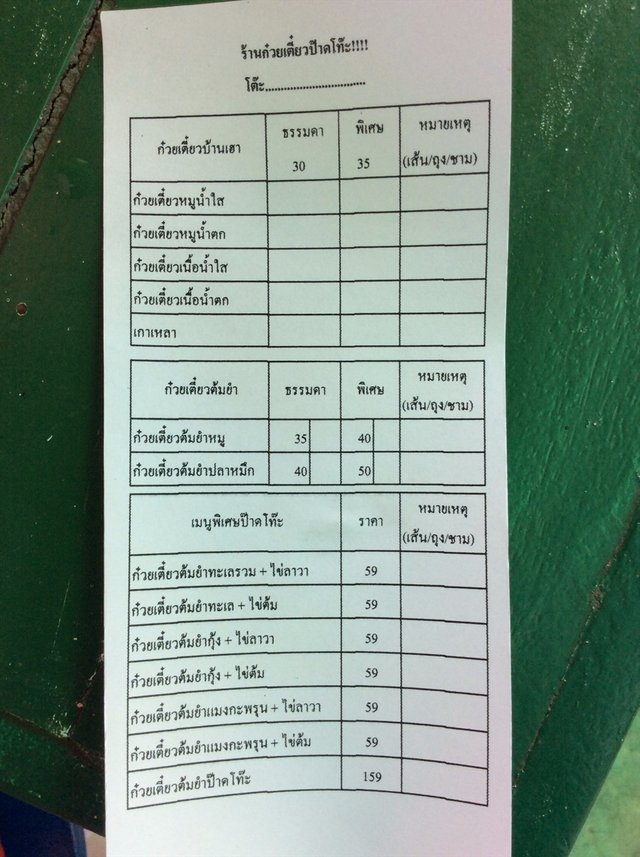 ร้านก๋วยเตี๋ยวป๊าดโท๊ะ!!!!
โต๊ะ................................
ก๋วยเตี๋ยวบ้านเฮา ธรรมดา 30 พิเศษ 35 หมายเหตุ (เส้น/ถุง/ชาม)
ก๋วยเตี๋ยวหมูน้ำใส
ก๋วยเตี๋ยวหมูน้ำตก
ก๋วยเตี๋ยวเนื้อน้ำใส
ก๋วยเตี๋ยวเนื้อน้ำตก
เกาเหลา
ก๋วยเตี๋ยวต้มยำ ธรรมดา พิเศษ หมายเหตุ (เส้น/ถุง/ชาม)
ก๋วยเตี๋ยวต้มยำหมู 35 40
ก๋วยเตี๋ยวต้มยำปลาหมึก 40 50
เมนูพิเศษป๊าดโท๊ะ ราคา หมายเหตุ (เส้น/ถุง/ชาม)
ก๋วยเตี๋ยวต้มยำทะเลรวม + ไข่ลาวา 59
ก๋วยเตี๋ยวต้มยำทะเล + ไข่ต้ม 59
ก๋วยเตี๋ยวต้มยำกุ้ง + ไข่ลาวา 59
ก๋วยเตี๋ยวต้มยำกุ้ง + ไข่ต้ม 59
ก๋วยเตี๋ยวต้มยำแมงกะพรุน + ไข่ลาวา 59
ก๋วยเตี๋ยวต้มยำแมงกะพรุน + ไข่ต้ม 59
ก๋วยเตี๋ยวต้มยำป๊าดโท๊ะ 159